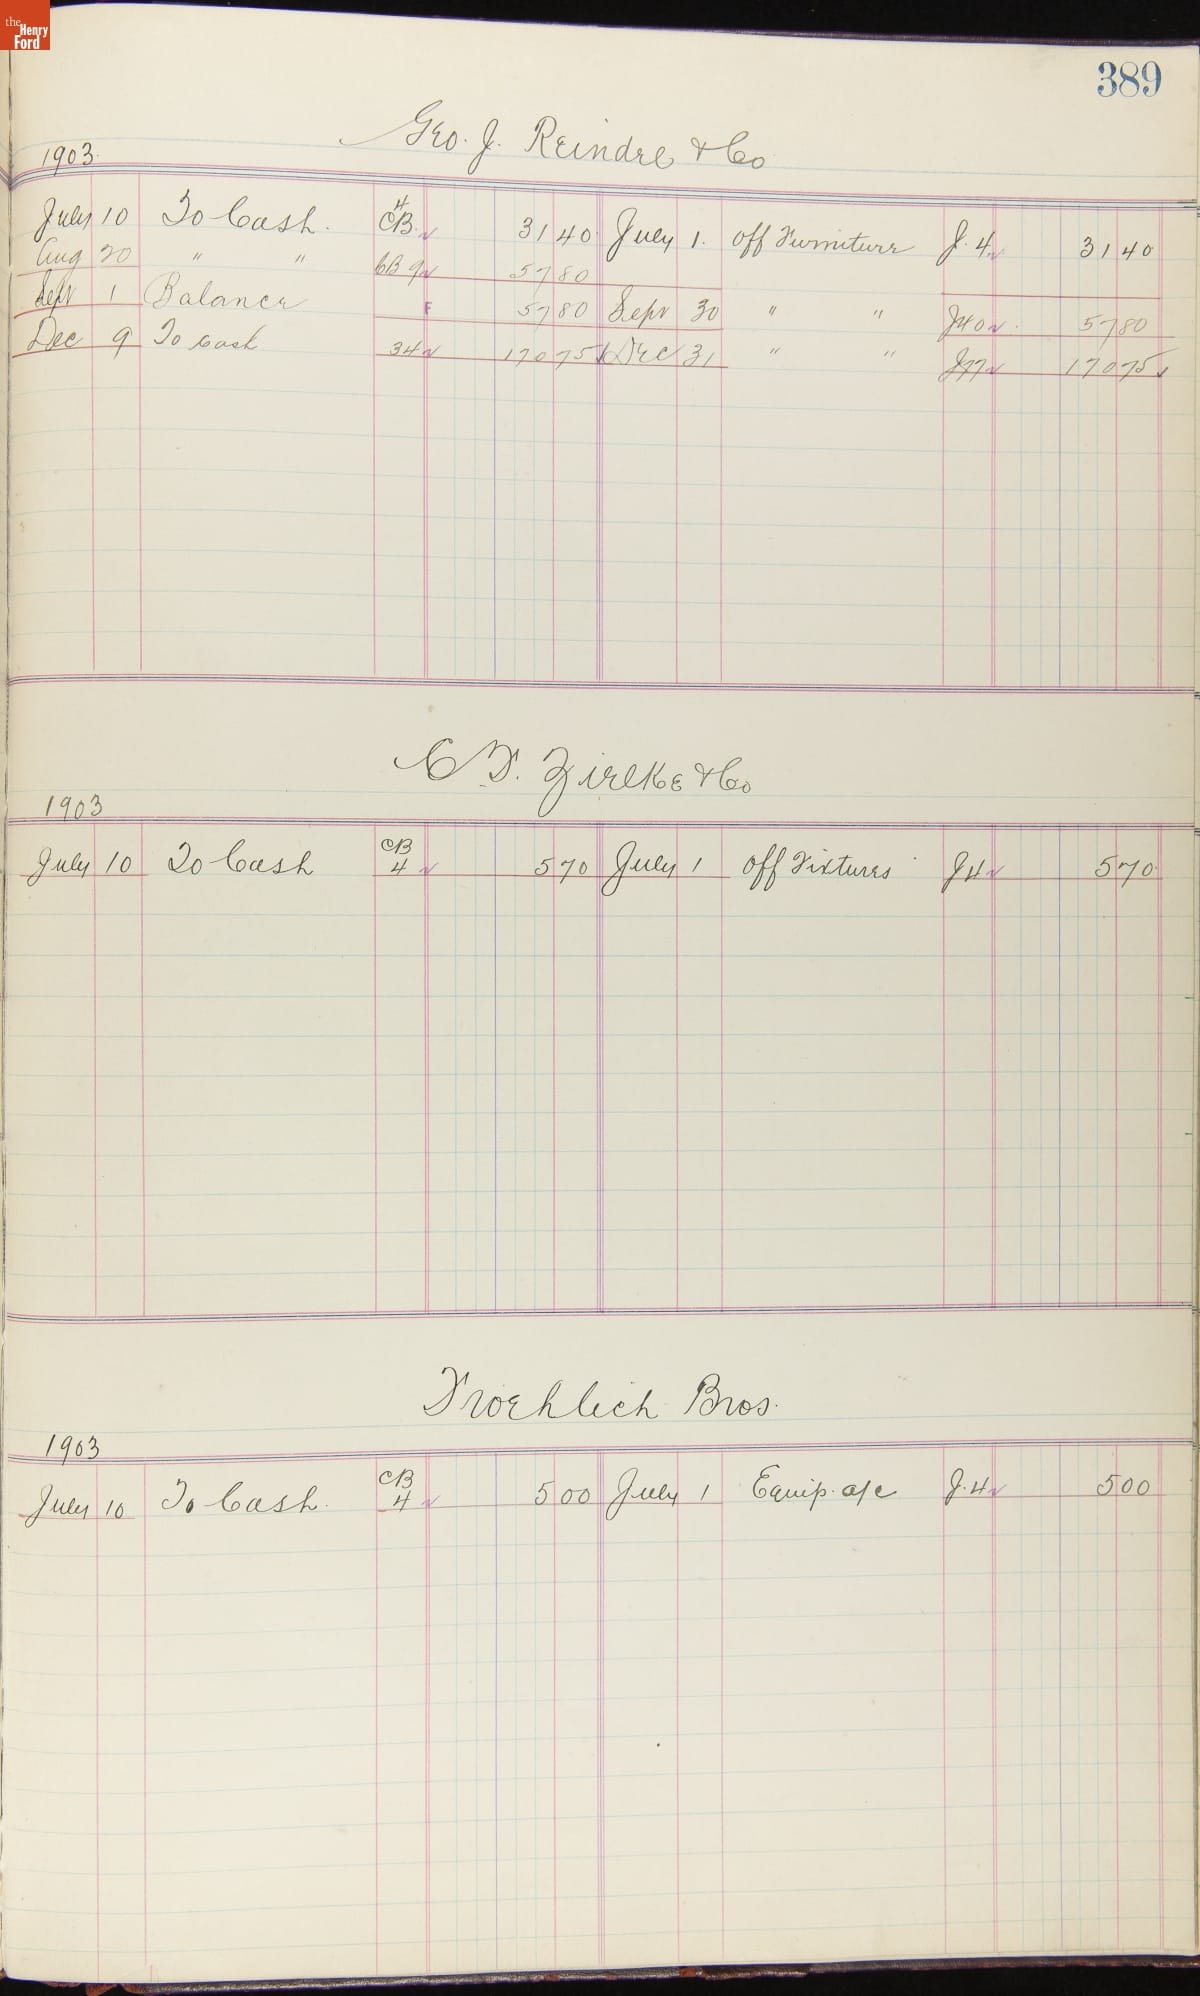 the Henry Ford
389
Geo. J. Reindel & Co
1903.
4
July 10 To Cash. CB. 31 40 July 1. Off Furniture J. 4 31 40
Aug 20 " " CB 9 57 80
Sept 1 Balance F 57 80 Sept 30 " " J40 57 80
Dec 9 To Cash 34 170 75 Dec 31 " " J77 170 75
C F. Zielke & Co
1903
July 10 To Cash CB 4 5 70 July 1 Off Fixtures J4 5 70
Froehlich Bros.
1903
July 10 To Cash. CB 4 5 00 July 1 Equip. a/c J. 4 5 00